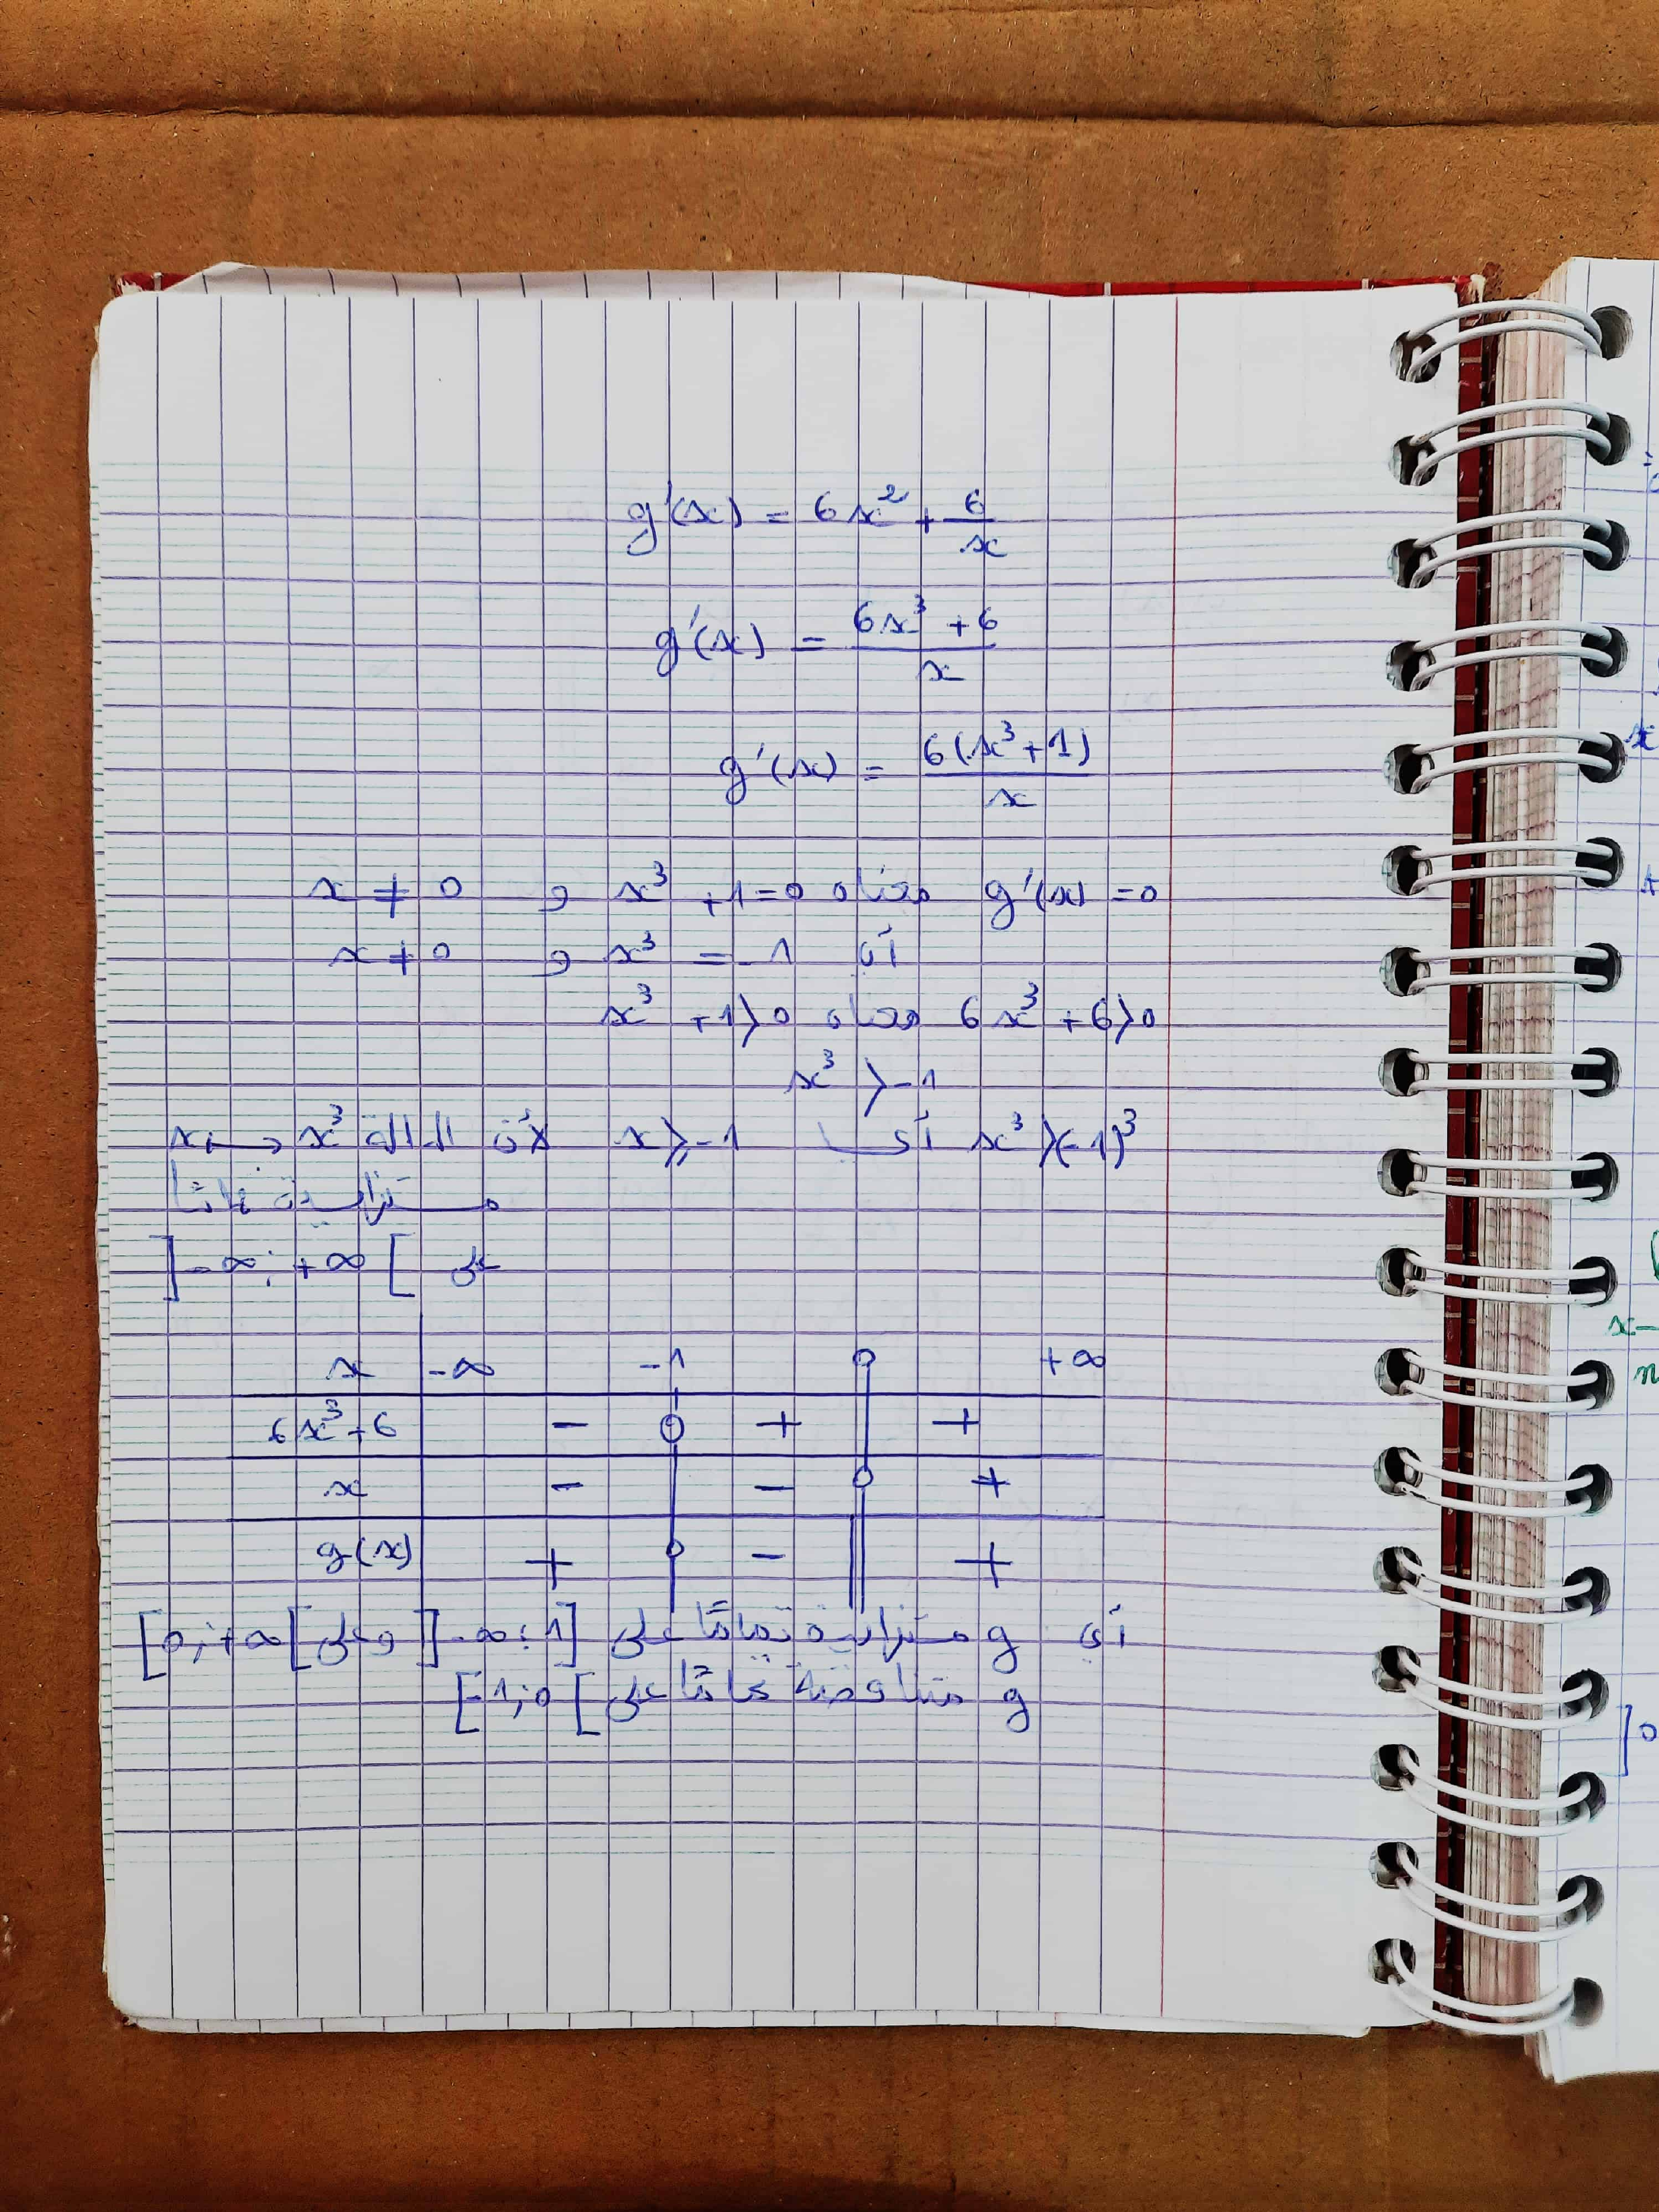 g'(x) = 6x² + 6/x
g'(x) = (6x³ + 6)/x
g'(x) = 6(x³ + 1)/x
g'(x) = 0 معناه x³ + 1 = 0 و x ≠ 0
أي x³ = -1 و x ≠ 0
6x³ + 6 > 0 معناه x³ + 1 > 0
x³ > -1
x³ > (-1)³ أي x > -1 لأن الدالة x ↦ x³
متزايدة تماما
على ]-∞; +∞[
x -∞ -1 0 +∞
6x³+6 - 0 + +
x - - 0 +
g(x) + 0 - || +
أي g متزايدة تمامًا على ]-∞; 1] وعلى [0; +∞[
g متناقصة تمامًا على [-1; 0[